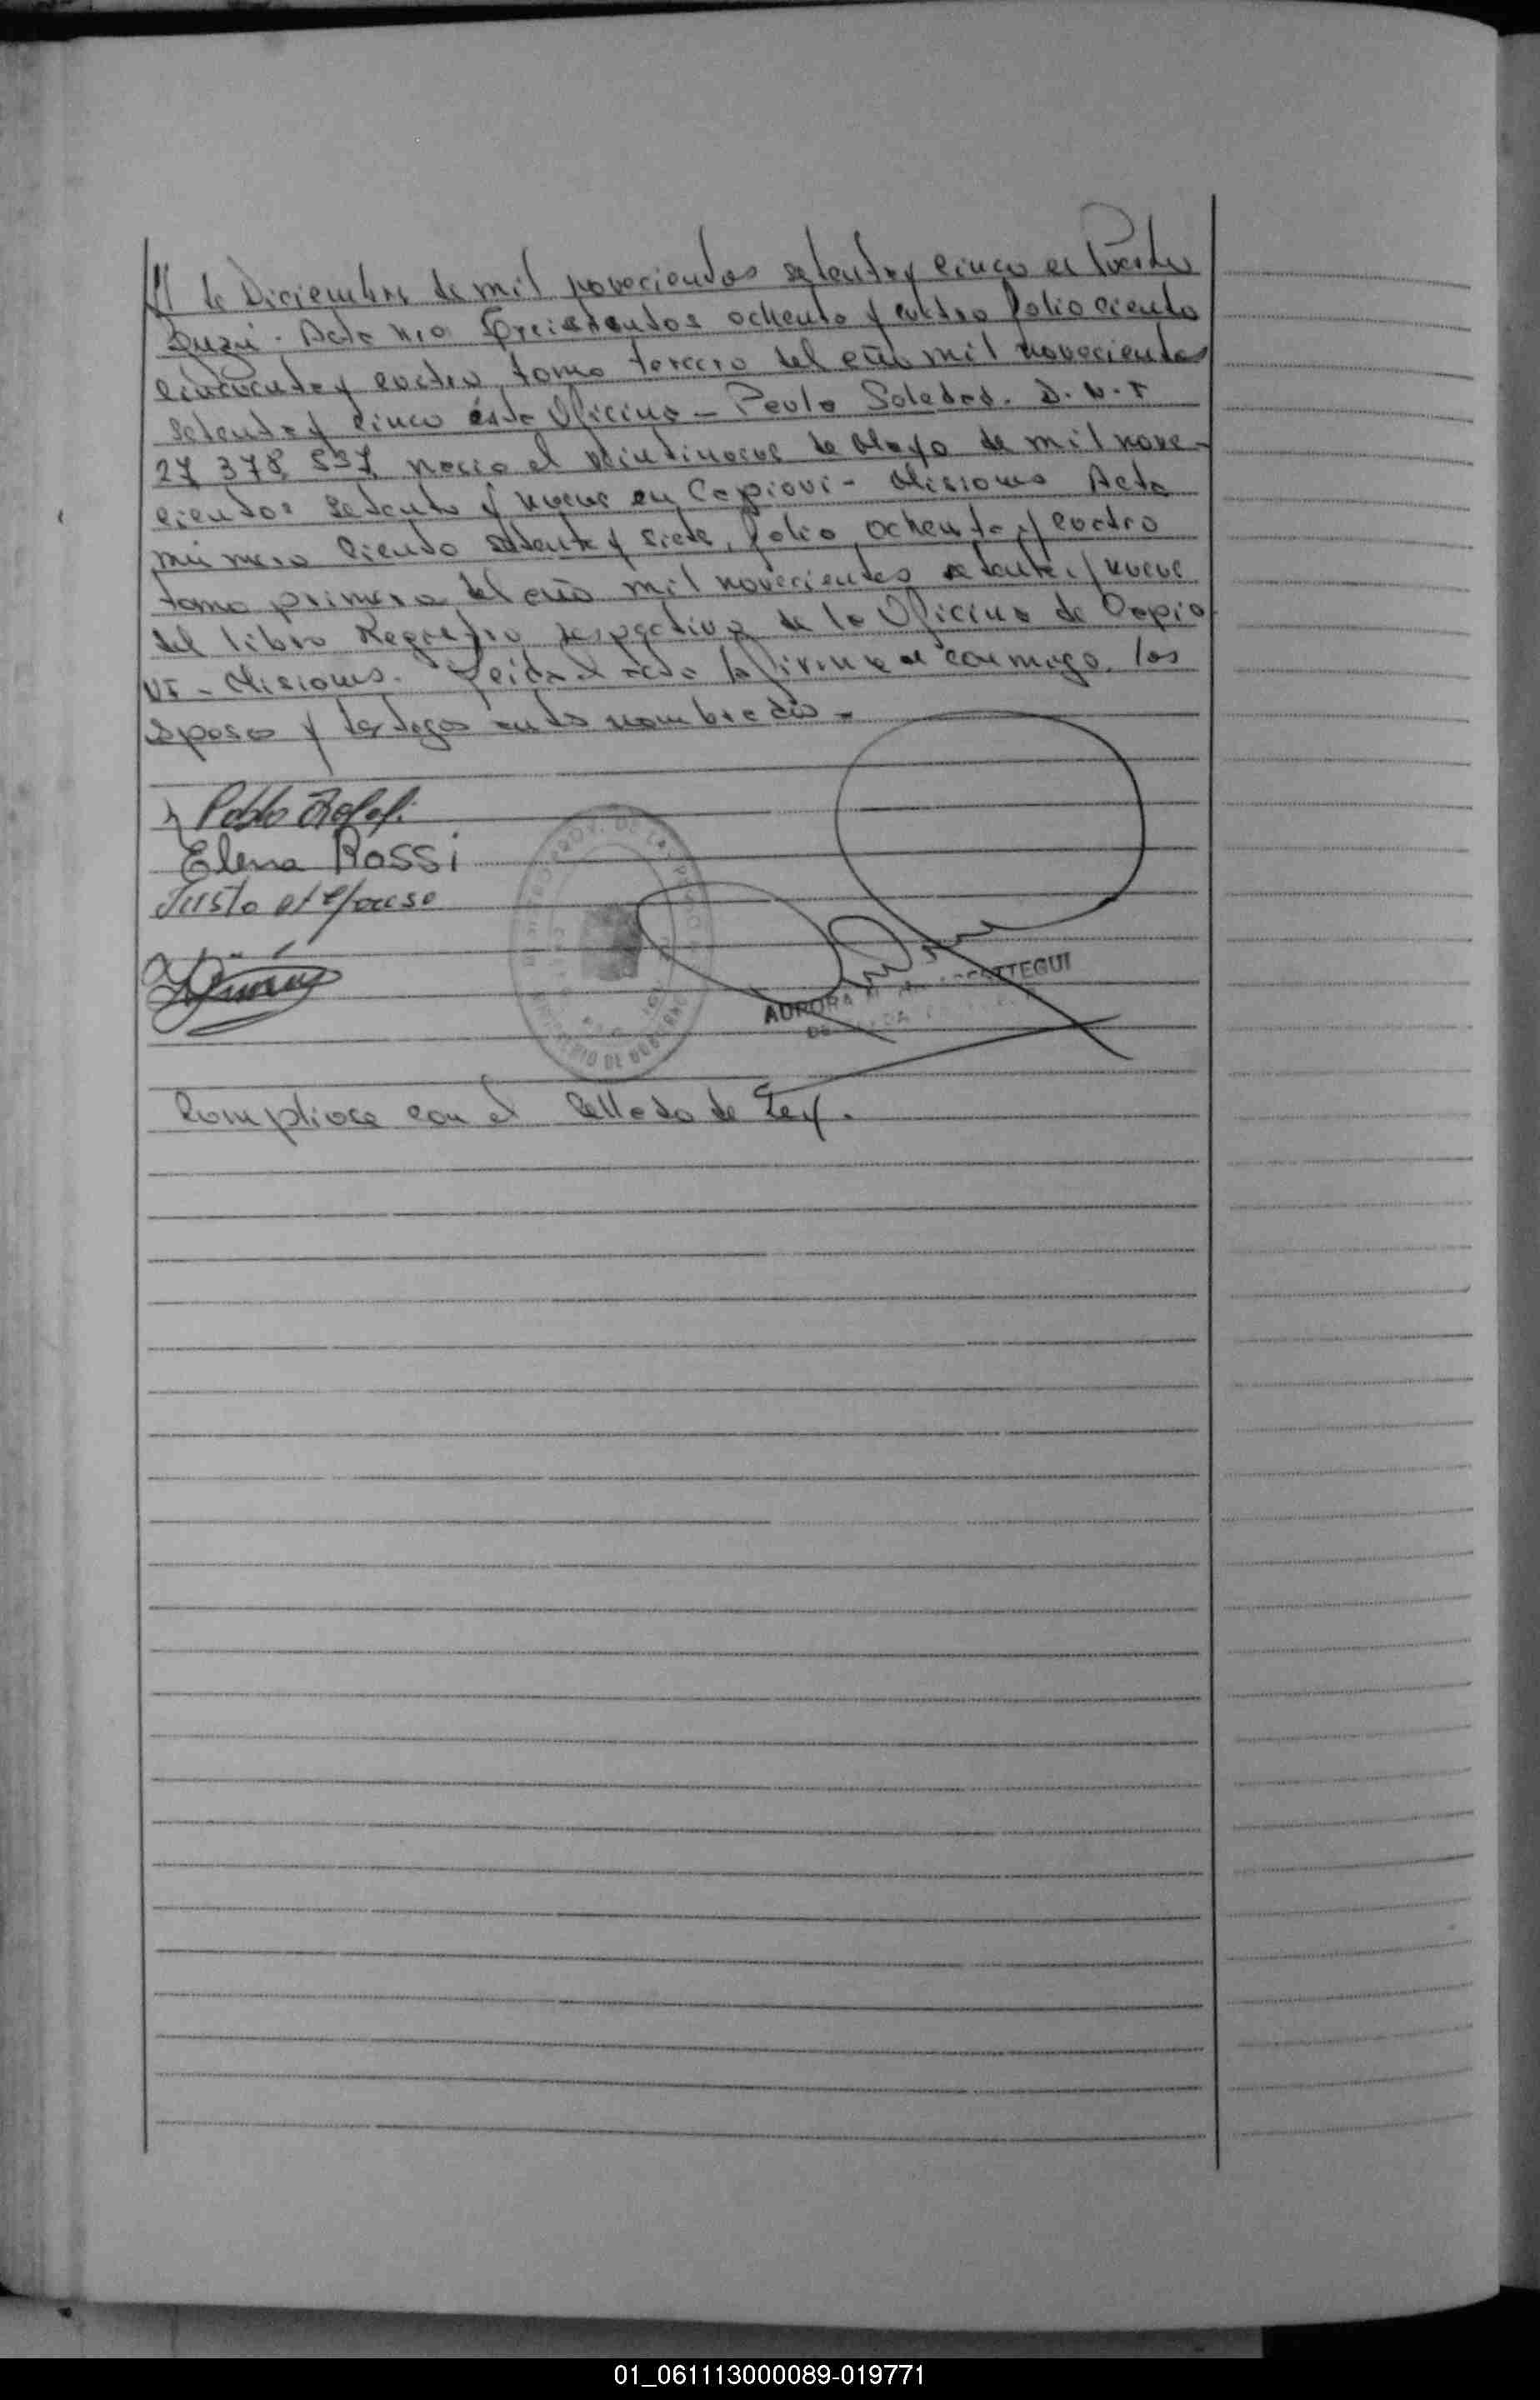 de Diciembre de mil novecientos setenta y cinco en Puerto
Iguazú. Acta Nro Trescientos ochenta y cuatro folio ciento
cincuenta y cuatro, tomo tercero del año mil novecientos
setenta y cinco ésta Oficina - Paula Soledad. D.N.I
27 378 537 nacio el veintinueve de Mayo de mil nove-
cientos setenta y nueve en Capiovi - Misiones Acta
número ciento setenta y siete, folio ochenta y cuatro
tomo primero del año mil novecientos setenta y nueve
del libro Registro respectivo de la Oficina de Capio
VI - Misiones. Leida el acta la firman conmigo, los
esposos y testigos antes nombrados -
Pablo
Elena Rossi
Justo
AURORA
DE LA PROV.
Cumpliose con el sellado de Ley.
01_061113000089-019771